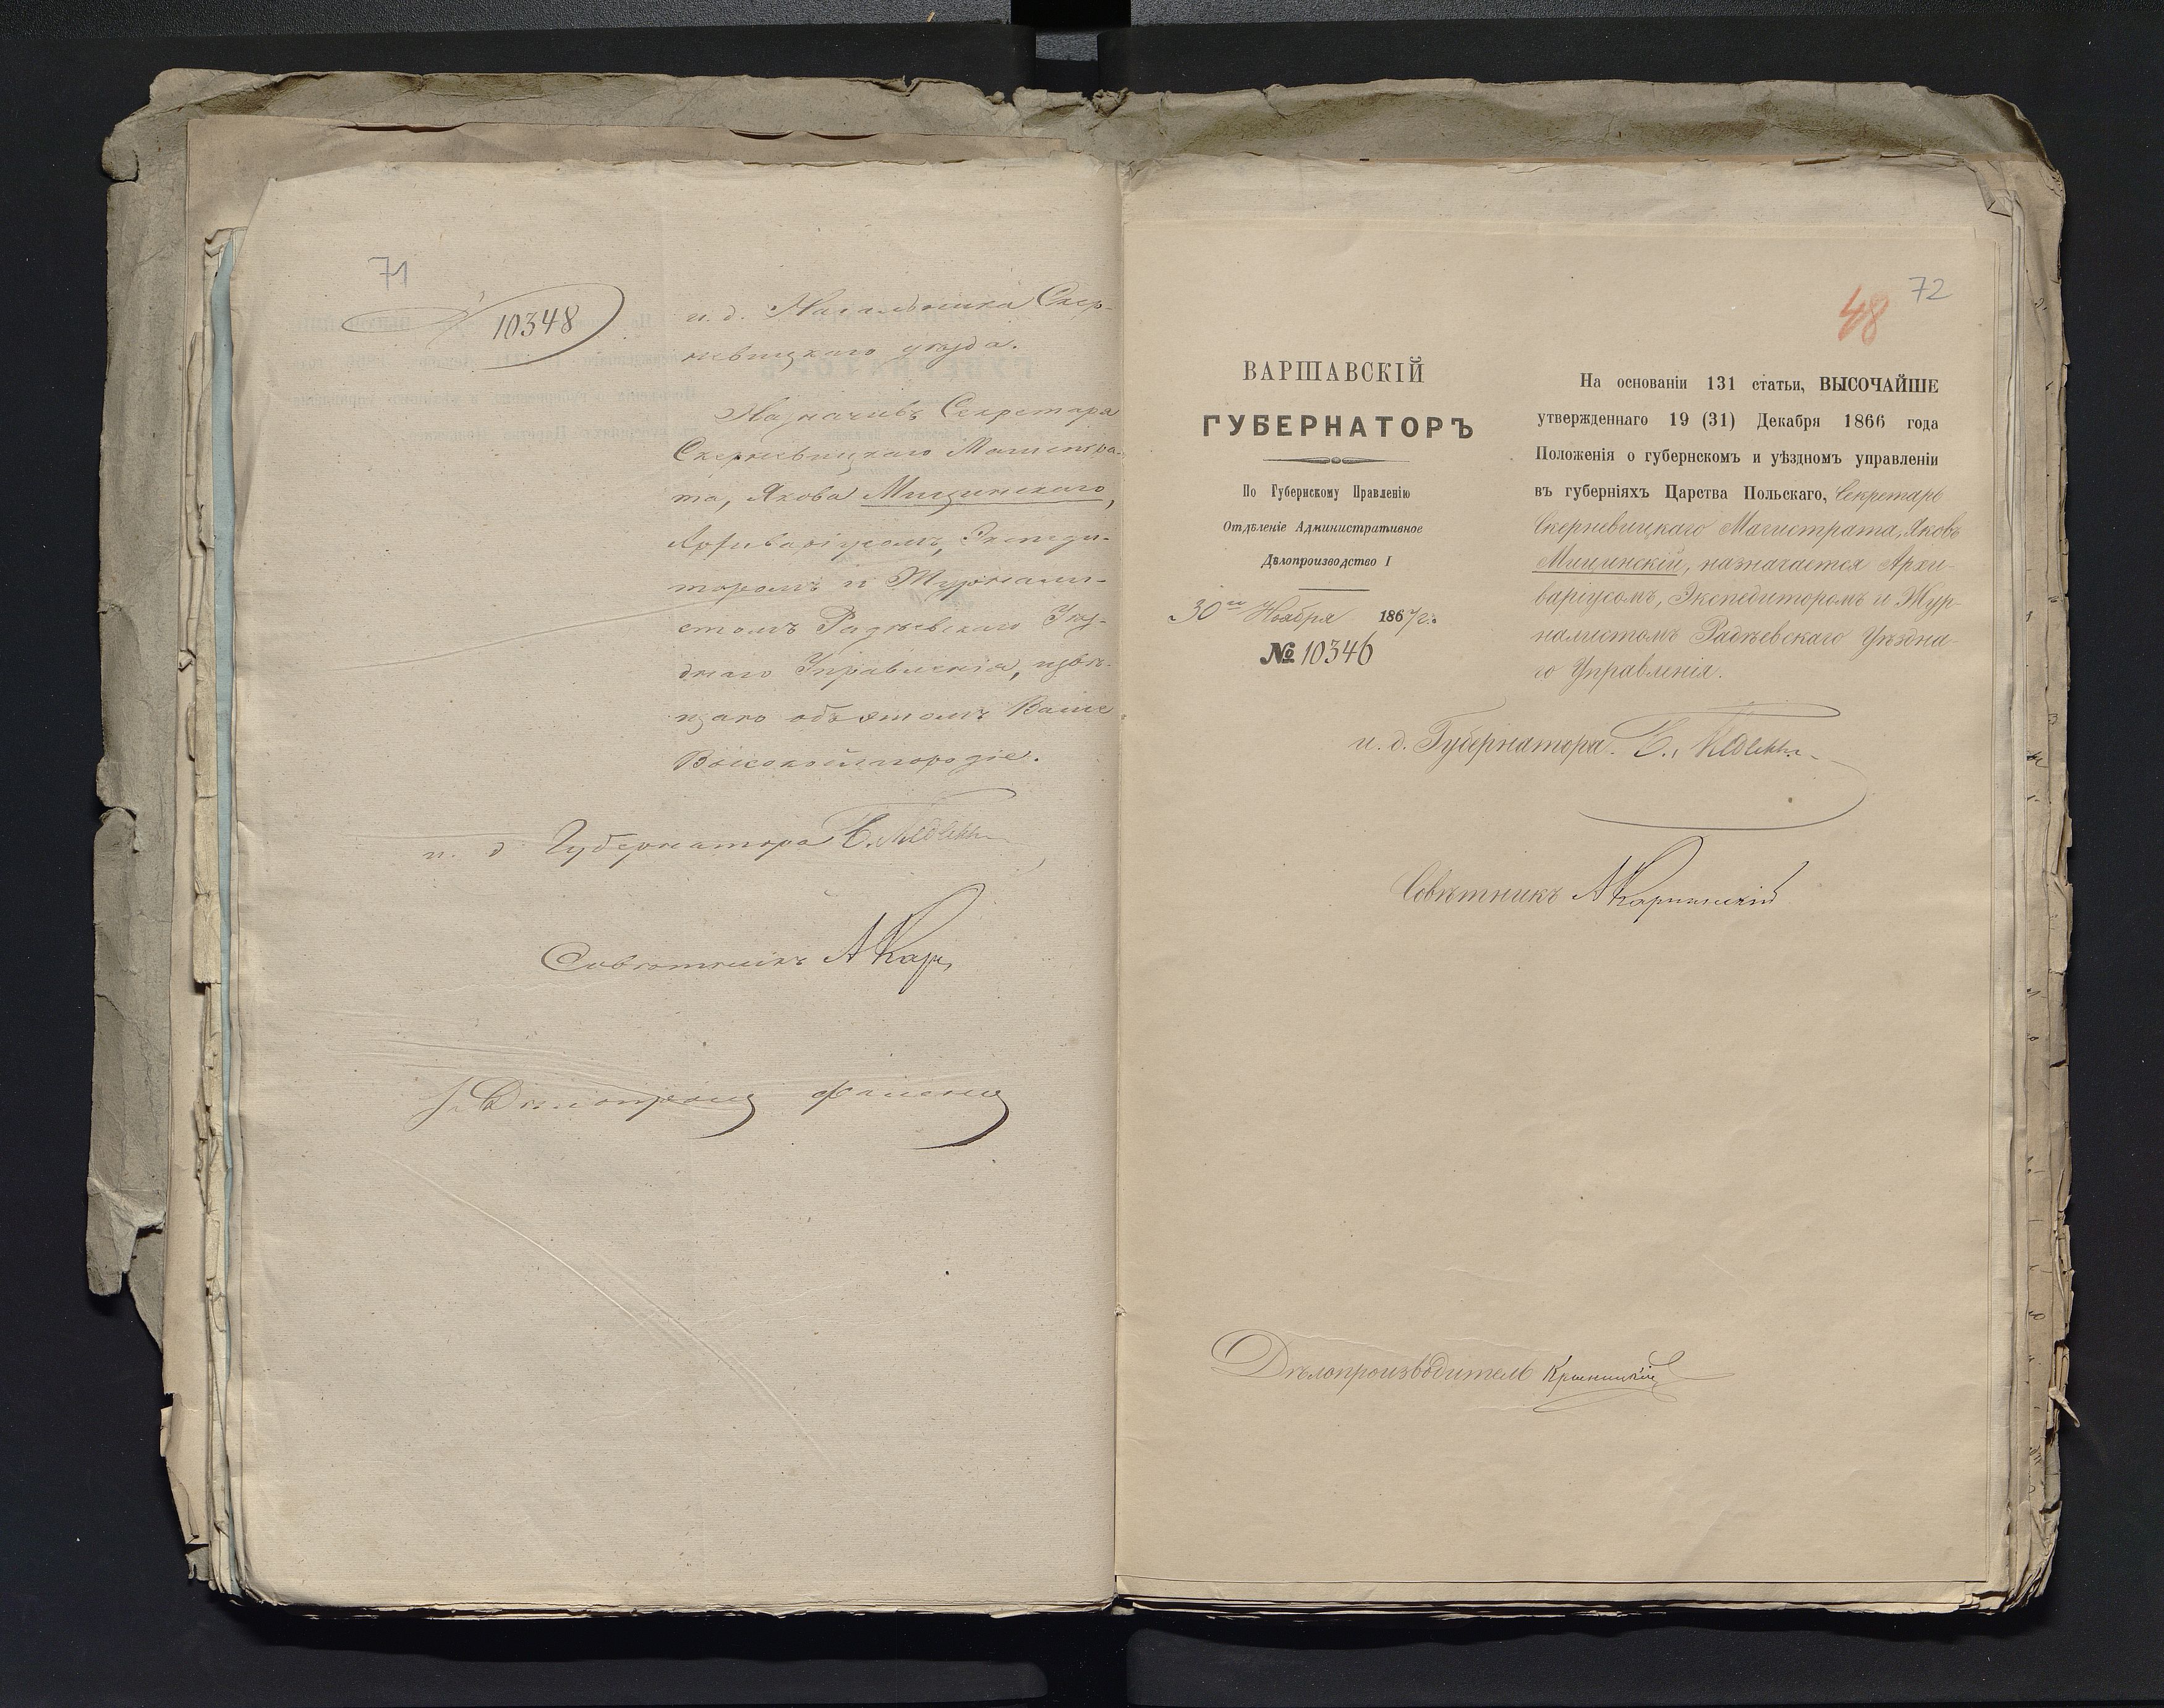 71
10348
и. д. Начальника Скер-
невицкаго уѣзда.
Назначивъ Секретаря
Скерневицкаго Магистра-
та, Якова Мищинскаго,
Архиваріусомъ, Экспеди-
торомъ и Журнали-
стомъ Радѣевскаго Уѣз-
днаго Управленія, извѣ-
щаю объ этомъ Ваше
Высокоблагородіе.
и. д. Губернатора
Совѣтникъ А Кар
72
48
ВАРШАВСКІЙ
ГУБЕРНАТОРЪ
По Губернскому Правленію
Отдѣленіе Административное
Дѣлопроизводство I
30го Ноября 1867 г.
№ 10346
На основаніи 131 статьи, ВЫСОЧАЙШЕ
утвержденнаго 19 (31) Декабря 1866 года
Положенія о губернскомъ и уѣздномъ управленіи
въ губерніяхъ Царства Польскаго, Секретарь
Скерневицкаго Магистрата, Яковъ
Мищинскій, назначается Архи-
варіусомъ, Экспедиторомъ и Жур-
налистомъ Радѣевскаго Уѣздна-
го Управленія.
и. д. Губернатора
Совѣтникъ А
Дѣлопроизводитель